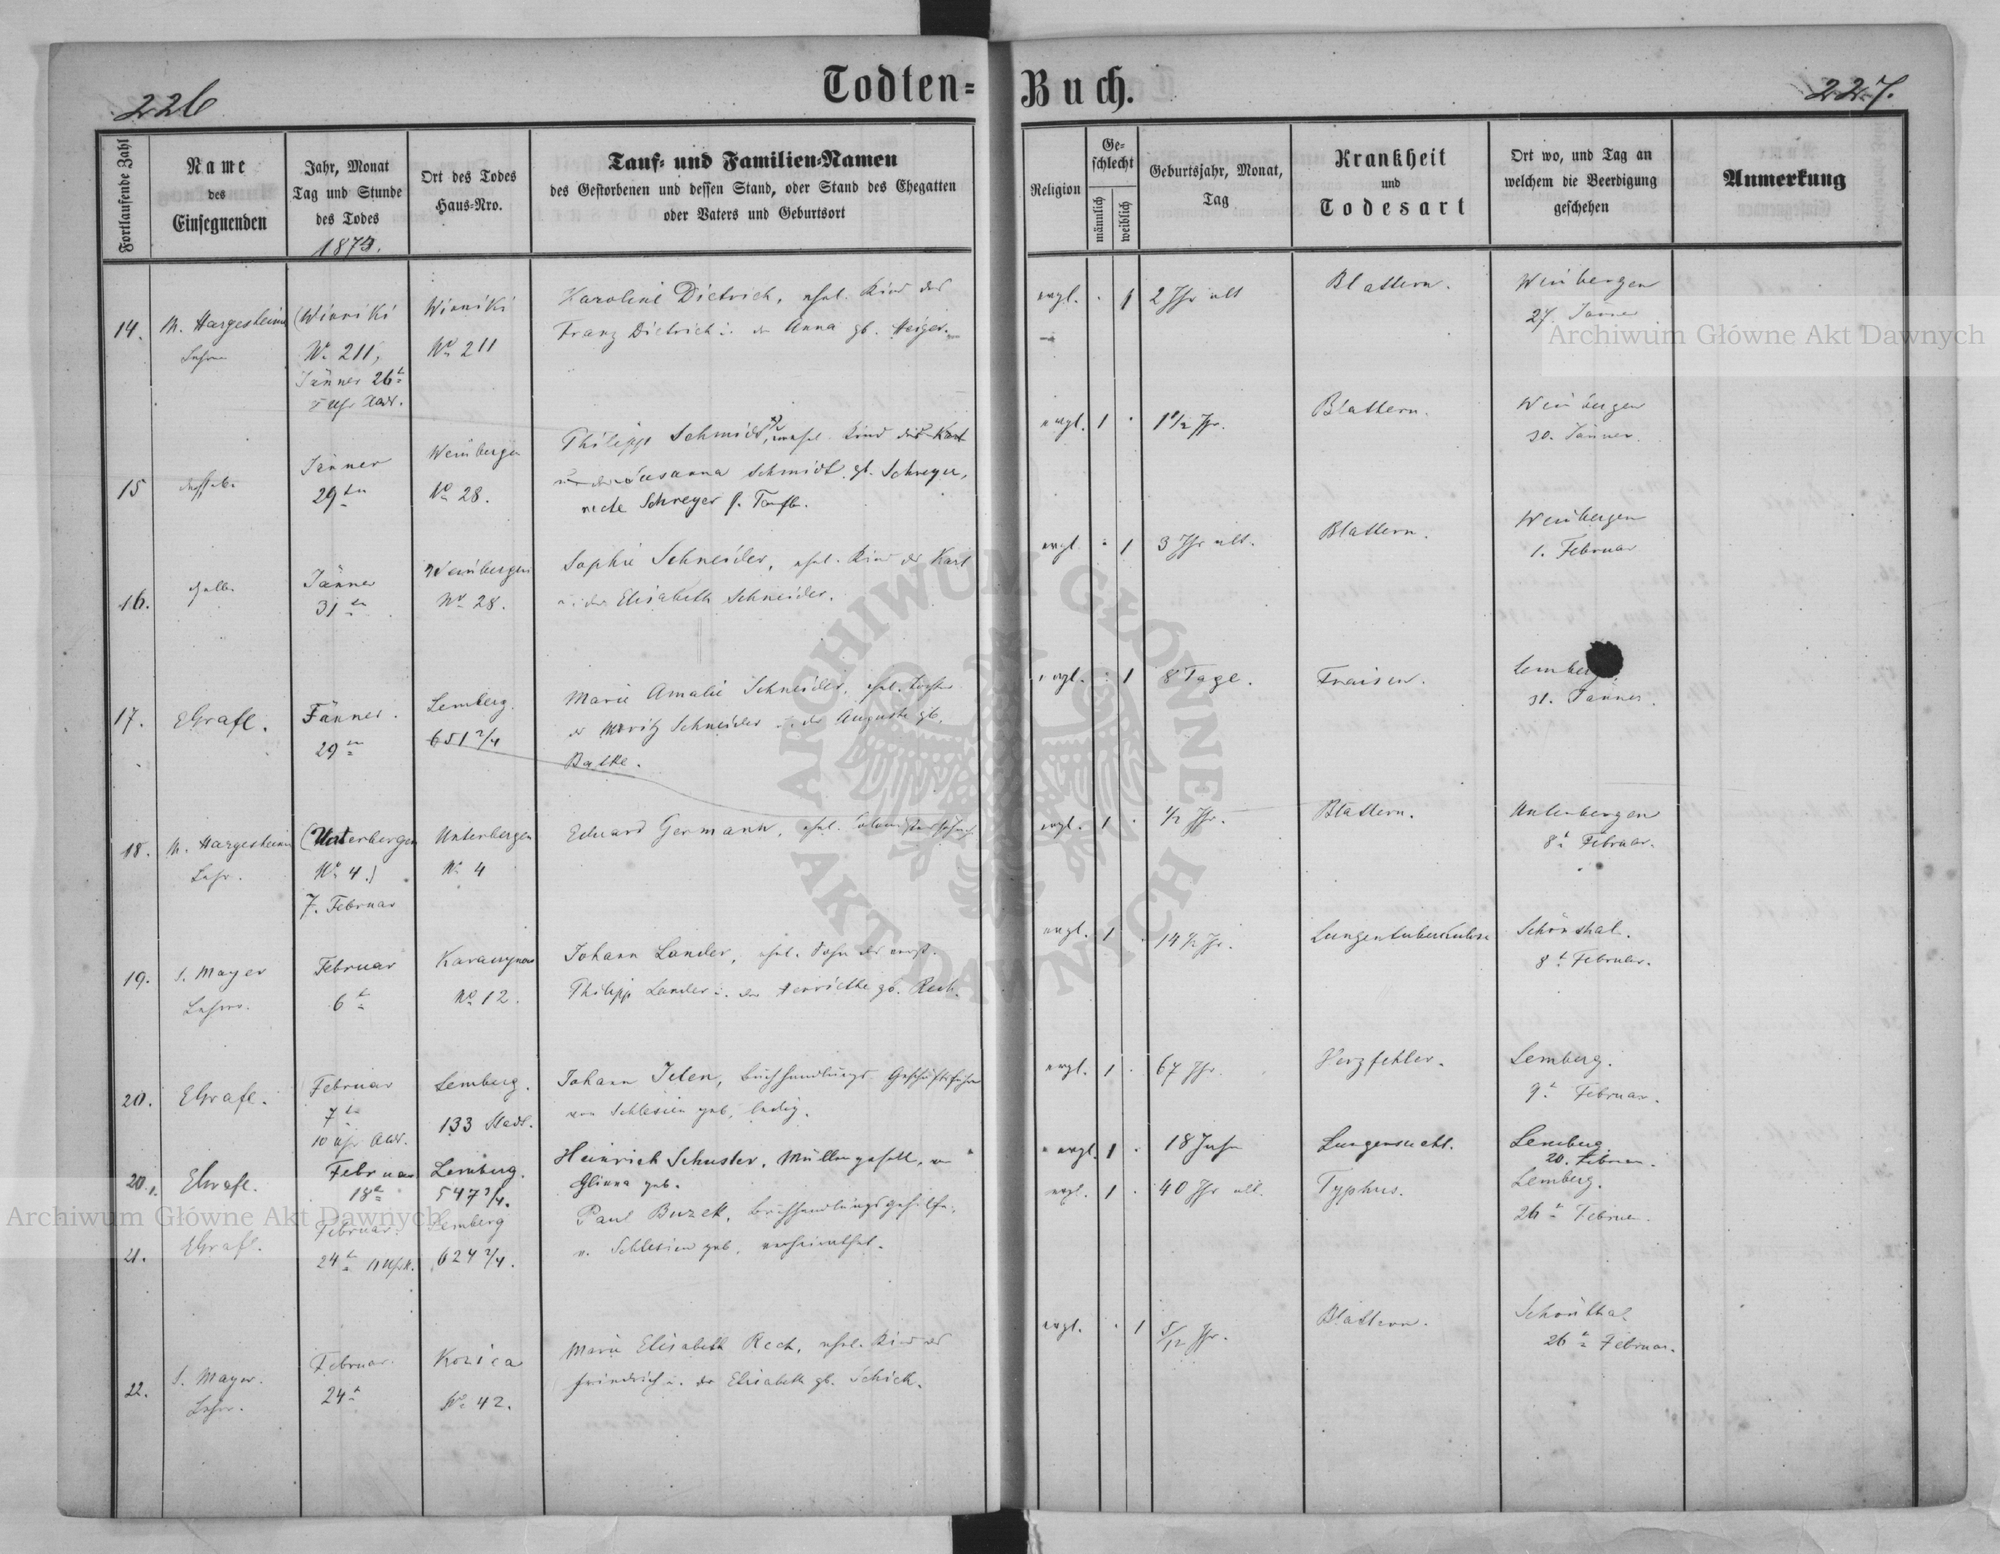 226
Todten=
Buch.
227.
Fortlaufende Zahl
Name
des
Einsegnenden
Jahr, Monat
Tag und Stunde
des Todes
Ort des Todes
Haus-Nro.
Tauf- und Familien-Namen
des Gestorbenen und dessen Stand, oder Stand des Ehegatten
oder Vaters und Geburtsort
Religion
Ge-
schlecht
männlich
weiblich
Geburtsjahr, Monat,
Tag
Krankheit
und
Todesart
Ort wo, und Tag an
welchem die Beerdigung
geschehen
Anmerkung
14.
M. Hargesheimer
(Winniki
No 211,
Jänner 26t
Winniki
No 211
Karoline Dietrich, ehel. Kind des
Franz Dietrich u. der Anna gb.
evgl. . 1
2 Jhr alt
Blattern.
Weinbergen
27. Jänner
15
Jänner
29ten
Weinbergen
No 28.
Philipp Schmidt, unehel. Kind des Karl
u. der Susanna Schmidt gb. Schreyer,
recte Schreyer
evgl. 1 .
1 1/2 Jhr.
Blattern.
Weinbergen
30. Jänner.
16.
Jänner
31ten
Weinbergen
No 28.
Sophie Schneider, ehel. Kind des Karl
u. der Elisabeth Schneider.
evgl. . 1
3 Jhr alt.
Blattern.
Weinbergen
1. Februar
17.
EGrafl.
Jänner.
29ten
Lemberg.
651 2/4
Marie Amalie Schneider, ehel. Tochter
des Moritz Schneider u. der Auguste gb.
Batke.
evgl. . 1
8 Tage.
Fraisen.
Lemberg.
31. Jänner.
18.
M. Hargesheimer
Lehr.
(Unterbergen
No 4.)
7. Februar
Unterbergen
No 4
Eduard Germann, ehel.
evgl. 1 .
1/2 Jhr.
Blattern.
Unterbergen
8t Februar.
19.
S. Mayer
Lehrer.
Februar
6t
No 12.
Johann Lander, ehel. Sohn des
Philipp Lander u. der Henriette gb. Rech.
evgl. 1 .
14 1/2 Jr.
Lungentuberkulose
Schönthal.
8t Februar.
20.
EGrafl.
Februar
7ten
10 Uhr
Lemberg.
133 Stadt.
Johann Jelen, Buchhandlungs Geschäftsführer
von Schlesien geb, ledig.
evgl. 1 .
67 Jhr.
Herzfehler.
Lemberg.
9t Februar.
20.1.
EGrafl.
Februar
18t
Lemberg.
547 3/4.
Heinrich Schuster, Müllergesell, v.
Glinna geb.
evgl. 1 .
18 Jahr
Lungensucht.
Lemberg
20. Februar.
21.
EGrafl.
Februar.
24t
Lemberg
624 2/4.
Paul Buzek, Buchhandlungsgehilfe,
v. Schlesien geb, verheirathet.
evgl. 1 .
40 Jhr alt.
Typhus.
Lemberg.
26t Februar.
22.
S. Mayer.
Lehrer.
Februar.
24t
Kozica
No 42.
Marie Elisabeth Rech, ehel. Kind des
Friedrich u. der Elisabeth gb. Schick.
evgl. . 1
5/12 Jhr.
Blattern.
Schönthal
26t Februar.
Archiwum Główne Akt Dawnych
Archiwum Główne Akt Dawnych
ARCHIWUM GŁÓWNE AKT DAWNYCH